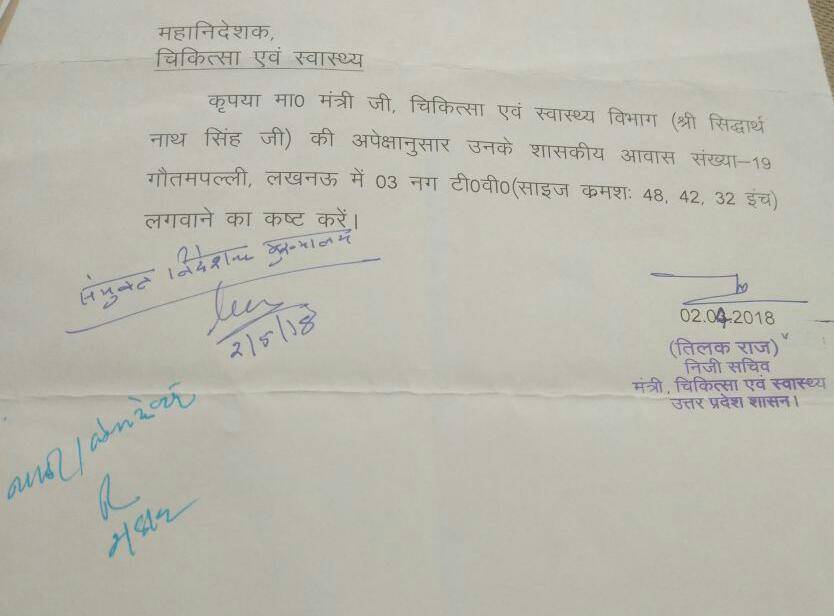 महानिदेशक,
चिकित्सा एवं स्वास्थ्य
कृपया मा0 मंत्री जी, चिकित्सा एवं स्वास्थ्य विभाग (श्री सिद्धार्थ
नाथ सिंह जी) की अपेक्षानुसार उनके शासकीय आवास संख्या–19
गौतमपल्ली, लखनऊ में 03 नग टी0वी0(साइज क्रमशः 48, 42, 32 इंच)
लगवाने का कष्ट करें।
संयुक्त निदेशक मुख्यालय
2/5/18
02.04.2018
(तिलक राज)
निजी सचिव
मंत्री, चिकित्सा एवं स्वास्थ्य
उत्तर प्रदेश शासन।